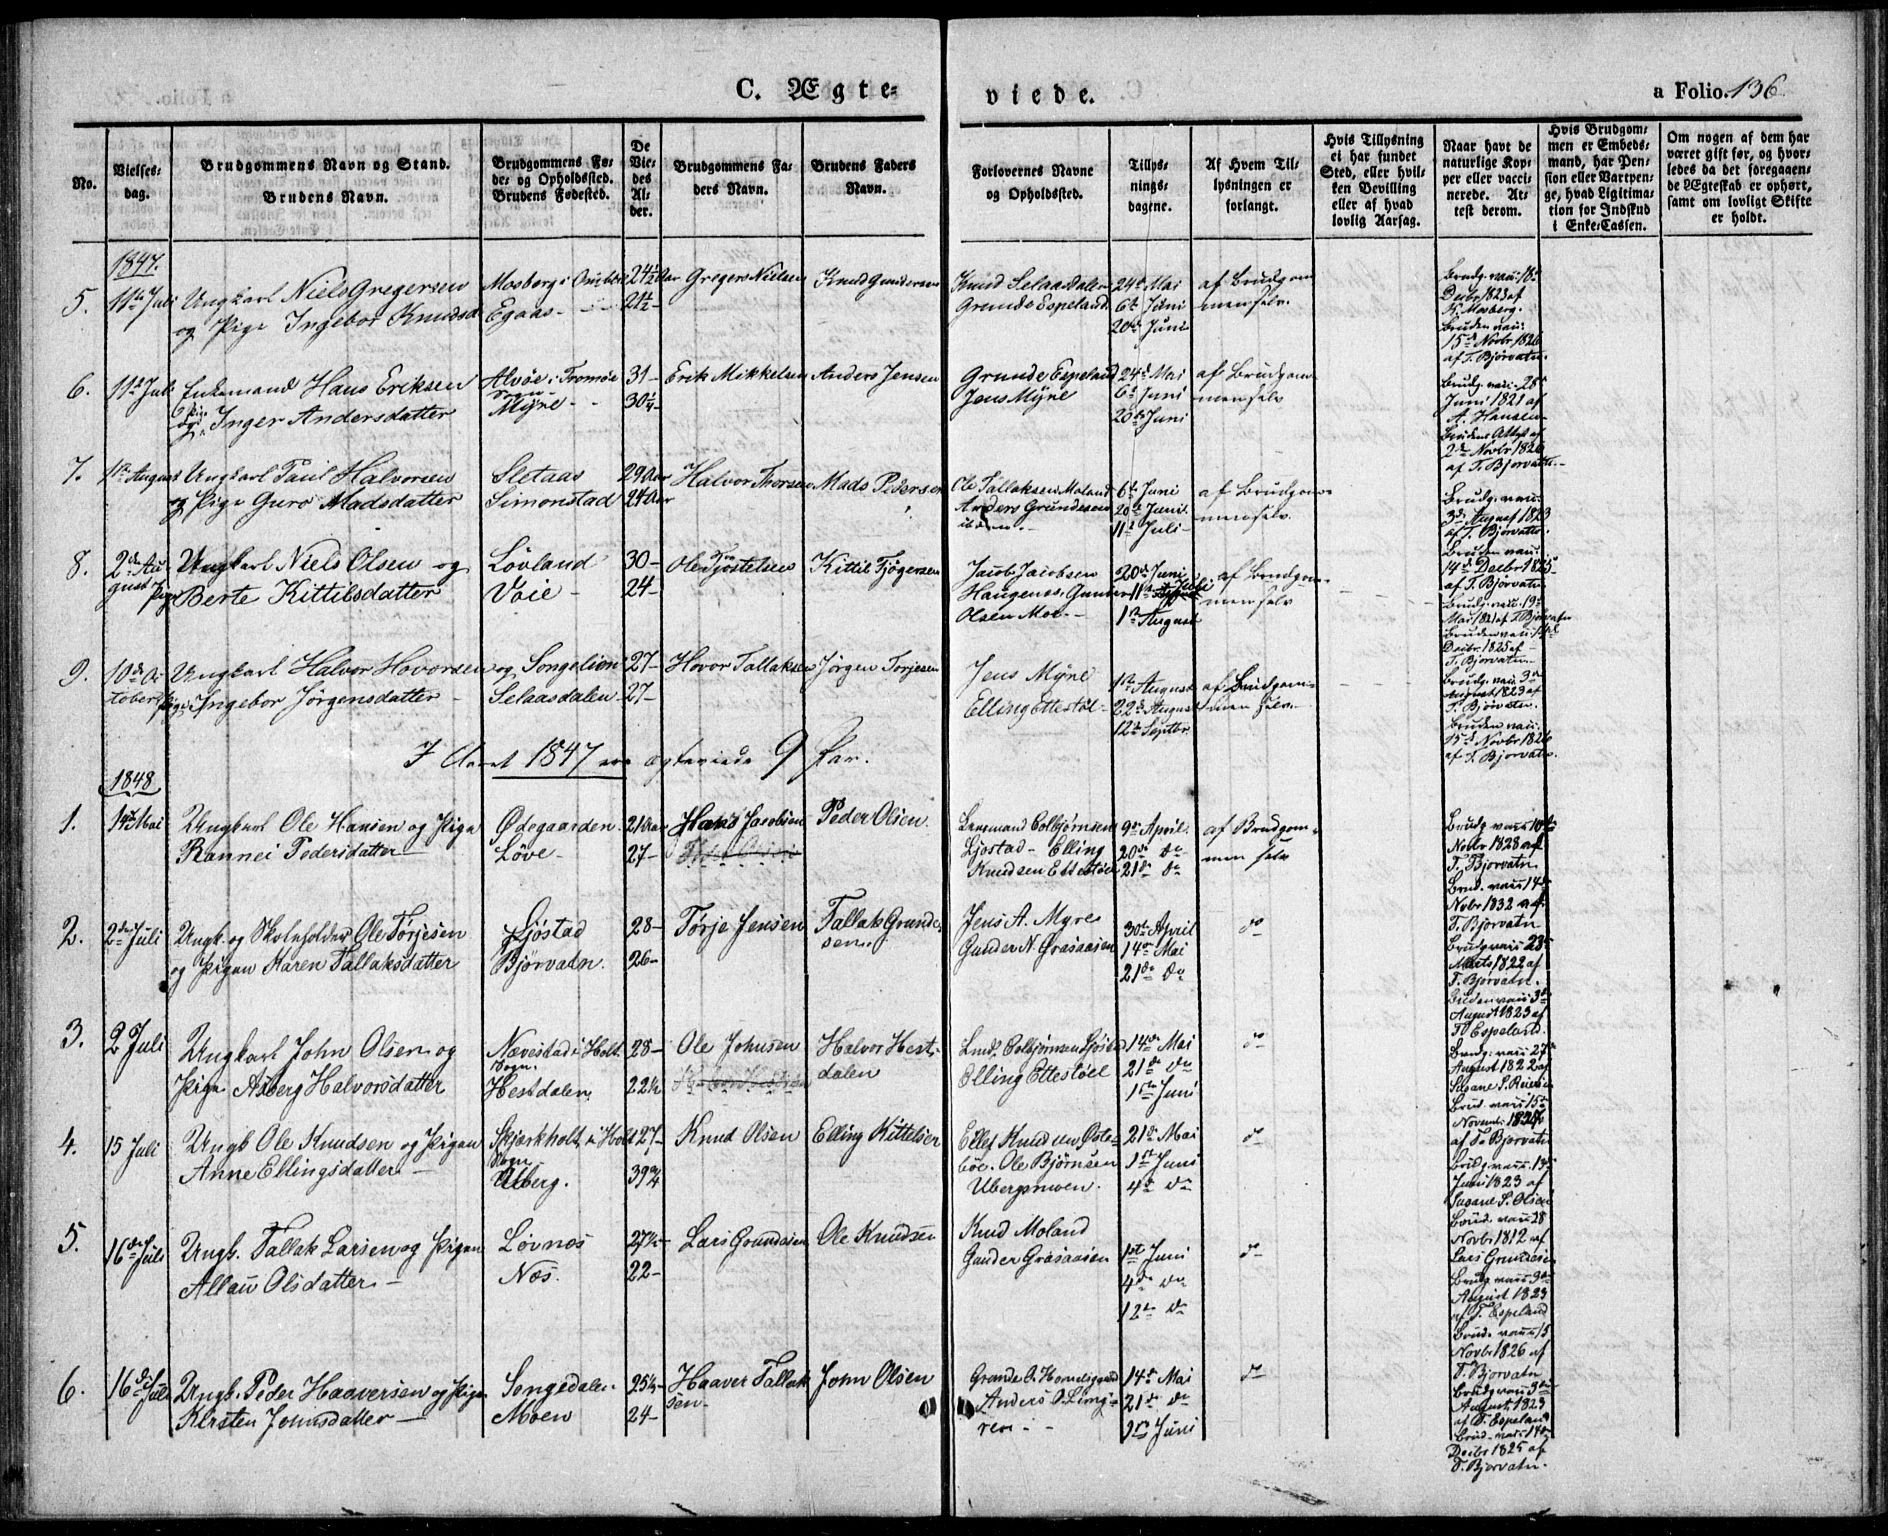 C. Ægte=
viede.
a Folio. 136
No.
Vielses=
dag.
Brudgommens Navn og Stand.
Brudens Navn.
Brudgommens Fø=
de= og Opholdssted.
Brudens Fødested.
De
Vie=
des
Al=
der.
Brudgommens Fa=
ders Navn.
Brudens Faders
Navn.
Forlovernes Navne
og Opholdssted.
Tillys=
nings=
dagene.
Af Hvem Til=
lysningen er
forlangt.
Hvis Tillysning
ei har fundet
Sted, eller hvil=
ken Bevilling
eller af hvad
lovlig Aarsag.
Naar havt de
naturlige Kop=
per eller vacci=
nerede. At=
test derom.
Hvis Brudgom=
men er Embeds=
mand, har Pen=
sion eller Vartpen=
ge, hvad Ligitima=
tion for Indskud
i Enke=Cassen.
Om nogen af dem har
været gift før, og hvor=
ledes da det foregaaen=
de Ægteskab er ophørt,
samt om lovligt Skifte
er holdt.
1847.
5. 11te Juli Ungkarl Niels Gregersen
og Pige Ingebor Knudsd
Mosberg i
Egaas -
24½ Aar
21½ -
Gregers Nielsen
Knud Gundersen
Knud Selaasdalen
Grunde Espeland
24de Mai
6te Juni
20de Juni
af Brudgom
men selv.
Brudg. vacc: 18de
Decbr 1823 af
K. Mosberg.
Bruden vacc:
15de Novbr 1826
af T. Bjørvatn.
6. 11te Juli Enkemand Hans Eriksen
og Pige Inger Andersdatter
Alvøe i Tromøe
Sogn
Myne - -
31 -
30¼
Erik Mikkelsen
Anders Jensen
Grunde Espeland
Jens Myne
24de Mai
6te Juni
20de Juni
af Brudgom
men selv
Brudg. vacc. 28de
Juni 1821 af
A. Hansen
Brudens Attest af
2de Novbr 1826
af T. Bjorvatn. -
7. 1te August Ungkarl Paul Halvorsen
og Pige Guro Madsdatter
Sletaas
Simonstad
29 Aar
24 Aar
Halvor Thorsen
Mads Pedersen
Ole Tallaksen Moland
Anders Grundesen
ibdm. -
6te Juni
20de Juni.
11te Juli -
af Brudgom=
men selv.
Brudg. vacc.
3de August 1823
af T. Bjørvatn.
Bruden vacc:
14de Decbr 1825
af T. Bjørvatn.
8. 2den Au
gust
Ungkarl Niels Olsen og
Pige Berte Kittilsdatter
Løvland
Vøie -
30 -
24 -
Ole Gjøstelsen
Kittil Fjøgersen
Jacob Jacobsen
Haugenes. Gunder
Olsen Moe -
20de Juni
11te Juli
1te August
af Brudgom=
men selv
Brudg. vacc. 19de
Mai 1821 af T. Bjørvatn
Bruden vacc. 14de
Decbr. 1825 af
T. Bjørvatn.
9. 10de Oc
tober
Ungkarl Halvor Hovorsen og
Pige Ingebor Jørgensdatter -
Songelien
Selaasdalen
27 -
27 -
Hovor Tallaksen
Jørgen Torjesen
Jens Myne
Elling Ettestøl -
1te August
22de August
12te Septbr
af Brudgom=
men selv.
Brudg. vacc. 3de
August 1823 af
T. Bjørvatn.
Bruden vacc:
15de Novbr 1826
af T. Bjorvatn.
I Aaret 1847 ere ægteviede 9 Par.
1848
1. 14de Mai Ungkarl Ole Hansen og Pige
Rannei Pedersdatter -
Ødegaarden
Løve -
21 Aar
27 -
Hans Jacobsen
Peder Olsen
Lensmand Colbjørnsen
Ljøstad - Elling
Knudsen Ettestøel
9de April.
20de do
21de do
af Brudgom=
men selv
Brudg. vacc: 10de
Novbr 1828 af
T. Bjorvatn
Brud. vacc: 14de
Novbr 1832 af
T. Bjorvatn
2. 2den Juli Ungk. og Skoleholder Ole Tørjesen
og Pigen Karen Tallaksdatter
Ljøstad
Bjørvatn.
28 -
26 -
Tørje Jensen
Tallak Grunde=
sen.
Jens A. Myre
Gunder N. Grasaasen
30te April
14de Mai
21de do
do
Brudg vacc: 28de
Marts 1822 af
T. Bjorvatn.
Bruden vacc: 3de
August 1823 af
T. Espeland.
3. 2 Juli Ungkarl John Olsen og
Pigen Asberg Halvorsdatter
Nævestad i Holt
Sogn.
Hestdalen
28 -
22½
Ole Johnsen
Halvor Hest=
dalen
Lmd. Colbjørnsen Ljøstad
Elling Ettestøel
14de Mai
21de do
1ste Juni
do
Brudg. vacc: 27de
August 1822 af
Susane S. Reiersen
Brud. vacc: 15de
Novemb. 1827
af T. Bjorvatn
4. 15 Juli Ungk Ole Knudsen og Pigen
Anne Ellingsdatter -
Skjerkholt, i Holt
Sogn.
Ubberg.
27 -
39¾
Knud Olsen
Elling Kittelsen
Ellef Knudsen Øste=
bøe. Ole Bjørnsen
Ubergsmoen.
21de Mai
1ste Juni
4de do
do
Brudg. vacc: 13de
Juni 1823 af
Susane S. Olsen
Brud. vacc: 28
Novbr 1812 af
Lars Grundesen
5. 16de Juli Ungk. Tallak Larsen og Pigen
Allau Olsdatter -
Løvnes
Næs.
27½ -
22 -
Lars Grundesen
Ole Knudsen
Knud Moland
Gunder Grasaasen
1ste Juni
4de do
12te do
do
Brudg vacc: 3de
August 1823
af T. Espeland
Brud. vacc: 15
Novbr 1826 af
T. Bjorvatn.
6. 16de Juli Ungk. Peder Haaversen og Pigen
Kirsten Johnsdatter -
Songedalen
Moen
25½ -
24 -
Haaver Tallak
sen -
John Olsen
Grunde O. Hommelsgaard
Anders O. Ling=
rem - -
14de Mai
21de do
1ste Juni
do
Brudg vacc: 3de
August 1823
af T. Espeland
Brud. vacc: 14de
Decbr 1825 af
T. Bjorvatn.